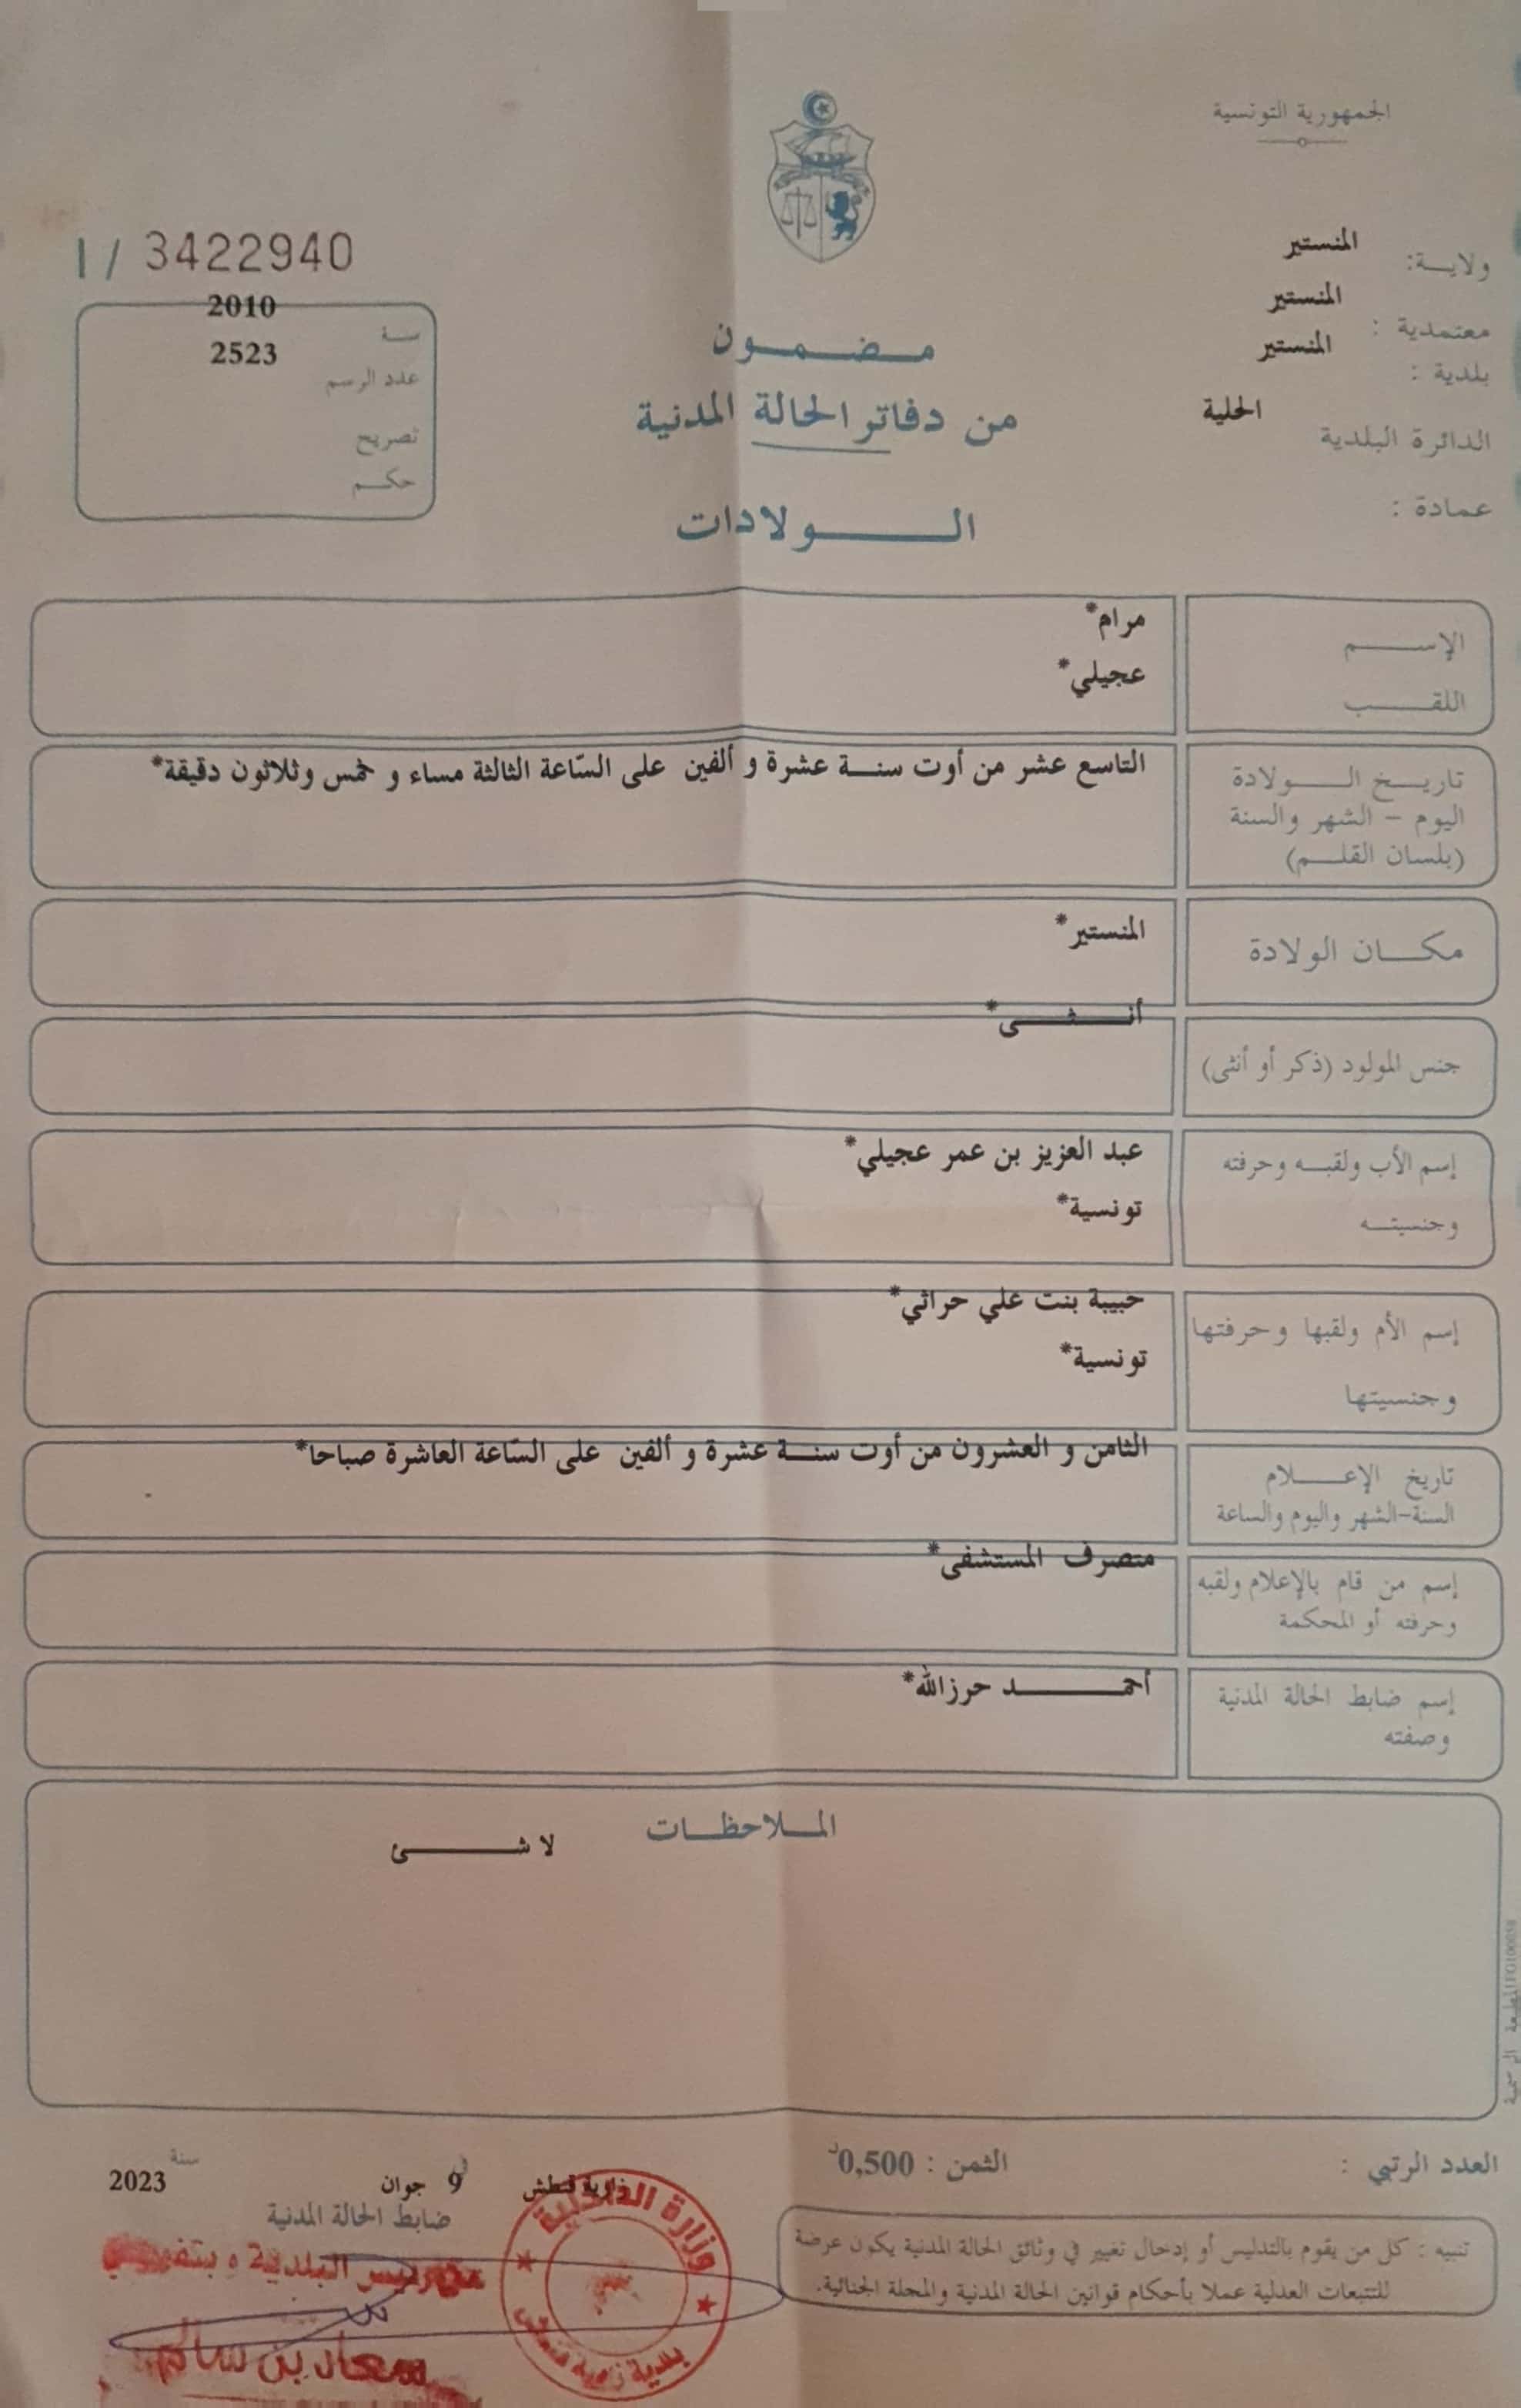 الجمهورية التونسية
ولايـة: المنستير
معتمدية : المنستير
بلدية : المنستير
الدائرة البلدية الحلية
عمادة :
1 / 3422940
سنة 2010
عدد الرسم 2523
تصريح
حكم
مضمون
من دفاتر الحالة المدنية
الولادات
الإسم مرام*
اللقب عجيلي*
تاريخ الولادة التاسع عشر من أوت سنة عشرة و ألفين على السّاعة الثالثة مساء و خمس وثلاثون دقيقة*
اليوم - الشهر والسنة
(بلسان القلم)
مكان الولادة المنستير*
جنس المولود (ذكر أو أنثى) أنثى*
إسم الأب ولقبه وحرفته عبد العزيز بن عمر عجيلي*
وجنسيته تونسية*
إسم الأم ولقبها وحرفتها حبيبة بنت علي حراثي*
وجنسيتها تونسية*
تاريخ الإعلام الثامن و العشرون من أوت سنة عشرة و ألفين على السّاعة العاشرة صباحا*
السنة-الشهر واليوم والساعة
إسم من قام بالإعلام ولقبه متصرف المستشفى*
وحرفته أو المحكمة
إسم ضابط الحالة المدنية أحمد حرزالله*
وصفته
الملاحظات
لا شئ
العدد الرتبي :
الثمن : 0,500د
تنبيه : كل من يقوم بالتدليس أو إدخال تغيير في وثائق الحالة المدنية يكون عرضة
للتتبعات العدلية عملا بأحكام قوانين الحالة المدنية والمجلة الجنائية.
زاوية قنطش في 9 جوان سنة 2023
ضابط الحالة المدنية
عن رئيس البلدية وبتفويض
سعاد بن سالم
وزارة الداخلية
بلدية زاوية قنطش
المطبعة الرسمية